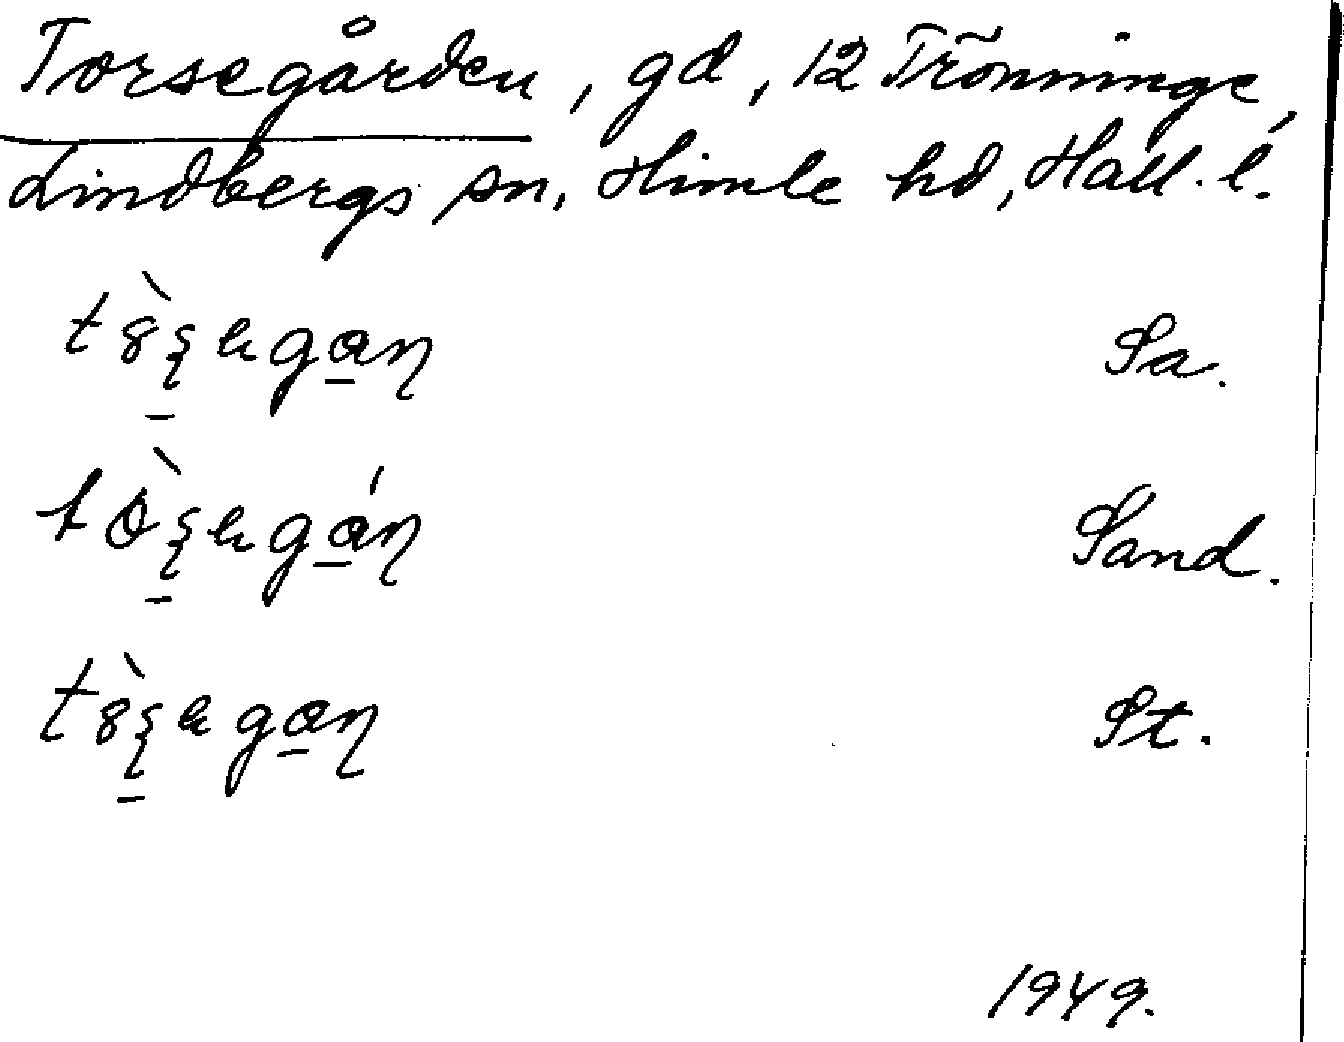 Torsegården, gd, 12 Trönninge,
Lindbergs sn, Himle hd, Hall. l.
Sa.
Sand.
St.
1949.